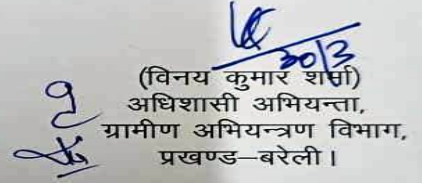 30/3
(विनय कुमार शर्मा)
अधिशासी अभियन्ता,
ग्रामीण अभियन्त्रण विभाग,
प्रखण्ड–बरेली।